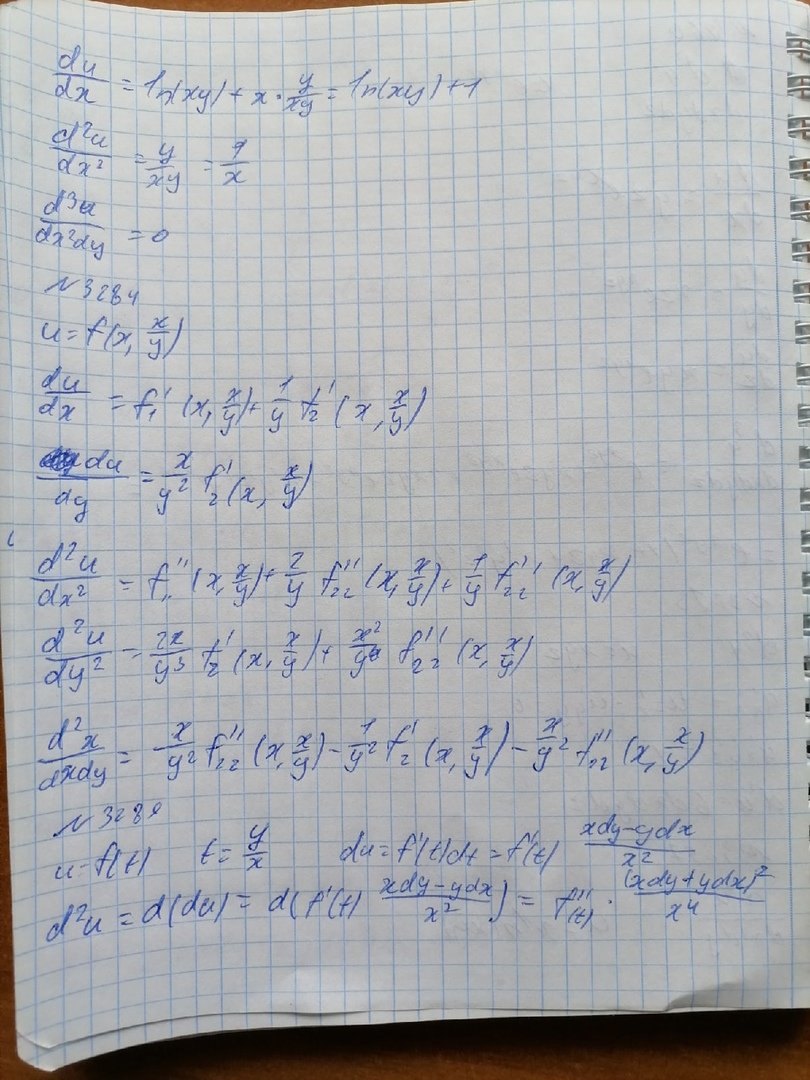 du/dx = ln(xy) + x · y/xy = ln(xy) + 1
d²u/dx² = y/xy = 1/x
d³u/dx²dy = 0
№3284
u = f(x, x/y)
du/dx = f₁'(x, x/y) + 1/y f₂'(x, x/y)
du/dy = x/y² f₂'(x, x/y)
d²u/dx² = f₁''(x, x/y) + 2/y f₂₂''(x, x/y) + 1/y f₂₂''(x, x/y)
d²u/dy² = 2x/y³ f₂'(x, x/y) + x²/y⁴ f₂₂''(x, x/y)
d²x/dxdy = x/y² f₂₂''(x, x/y) - 1/y² f₂'(x, x/y) - x/y² f₁₂''(x, x/y)
№3289
u = f(t) t = y/x du = f'(t)dt = f'(t) xdy-ydx/x²
d²u = d(du) = d(f'(t) xdy-ydx/x²) = f''(t) · (xdy+ydx)²/x⁴